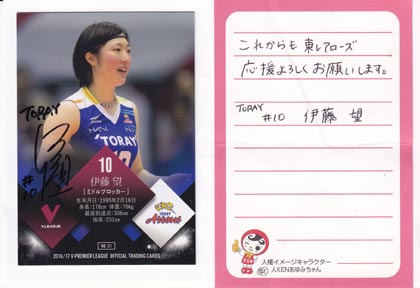 TORAY
#10
TORAY
10
伊藤 望
[ミドルブロッカー]
生年月日:1995年2月16日
身長:178cm 体重:70kg
最高到達点:306cm
指高:231cm
TORAY
Arrows
V.LEAGUE
RG-21
2016/17 V・PREMIER LEAGUE OFFICIAL TRADING CARDS
これからも東レアローズ
応援よろしくお願いします。
TORAY
#10 伊藤 望
人権イメージキャラクター
人KENあゆみちゃん